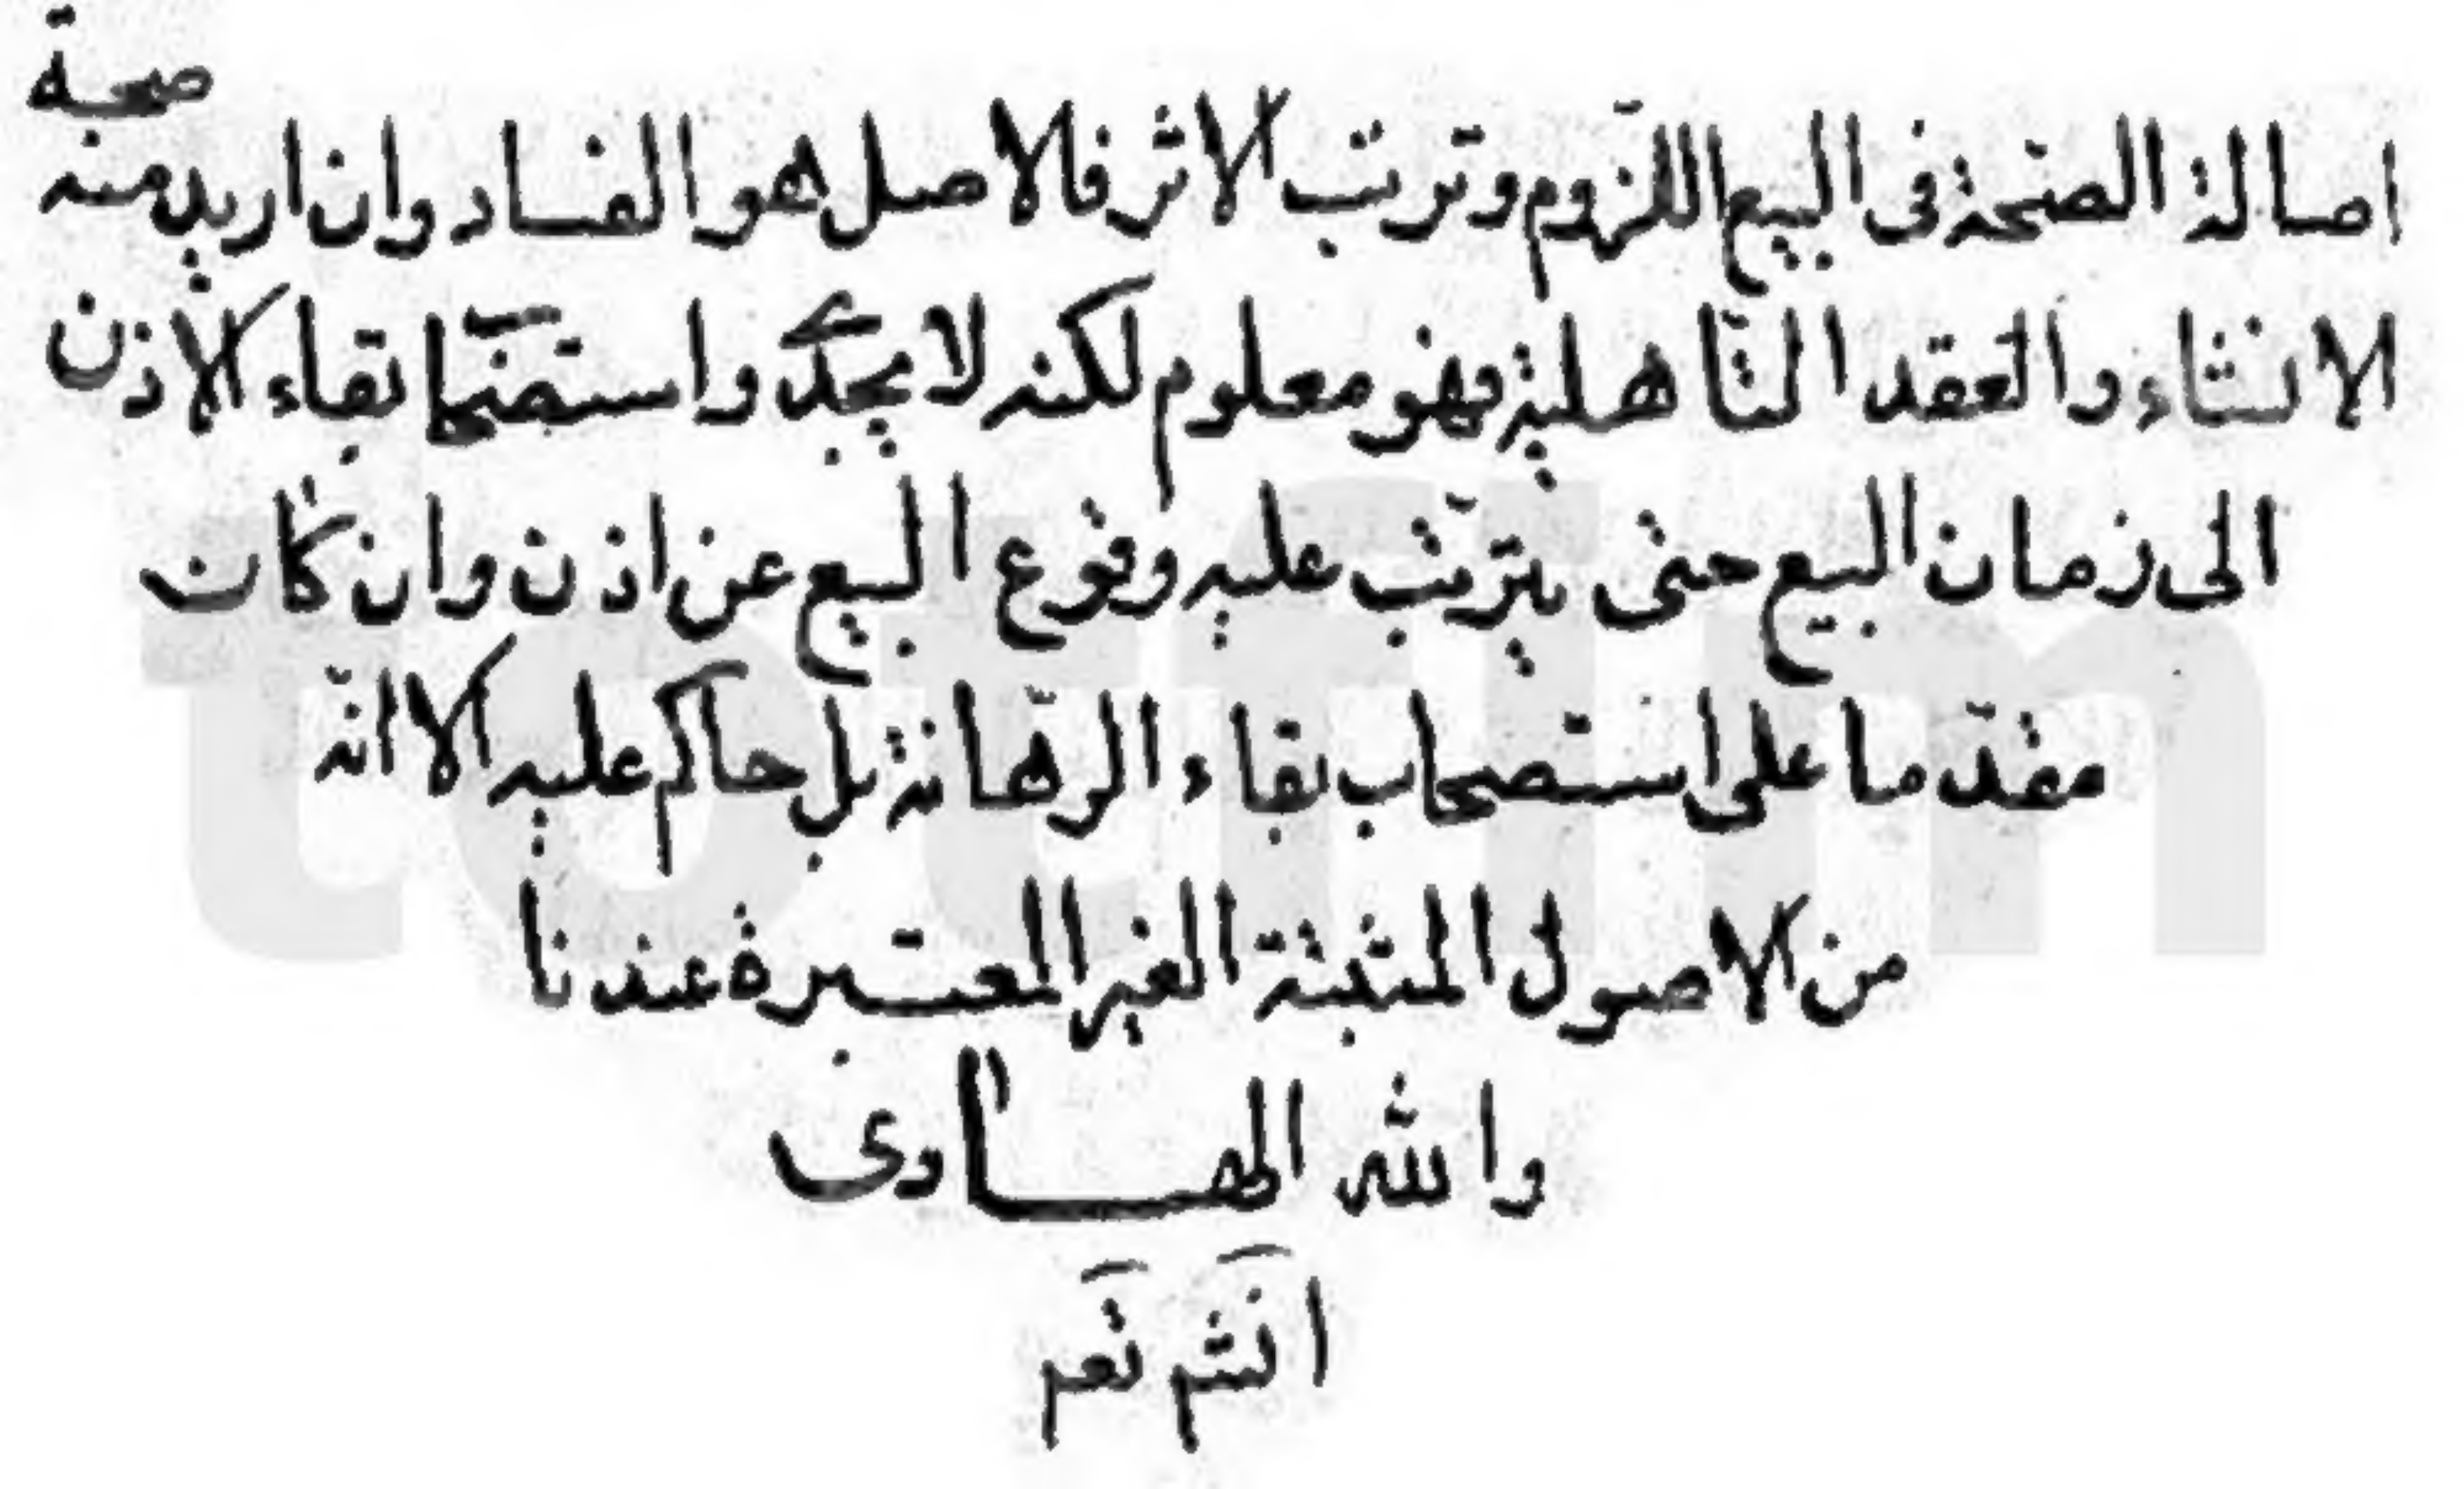 اصالة الصّحة فى البيع اللّزوم وترتب الاثر فالاصل هو الفساد وان اريد منه صحة
الانشاء والعقد التّاهلية فهو معلوم لكنه لا يجدى واستصحاب بقاء الاذن
الى زمان البيع حتى يترتّب عليه وقوع البيع عن اذن وان كان
مقدّما على استصحاب بقاء الرّهانة بل حاكم عليه الا انّه
من الاصول المثبتة الغير المعتبرة عندنا
والله الهادى
انتم نعم